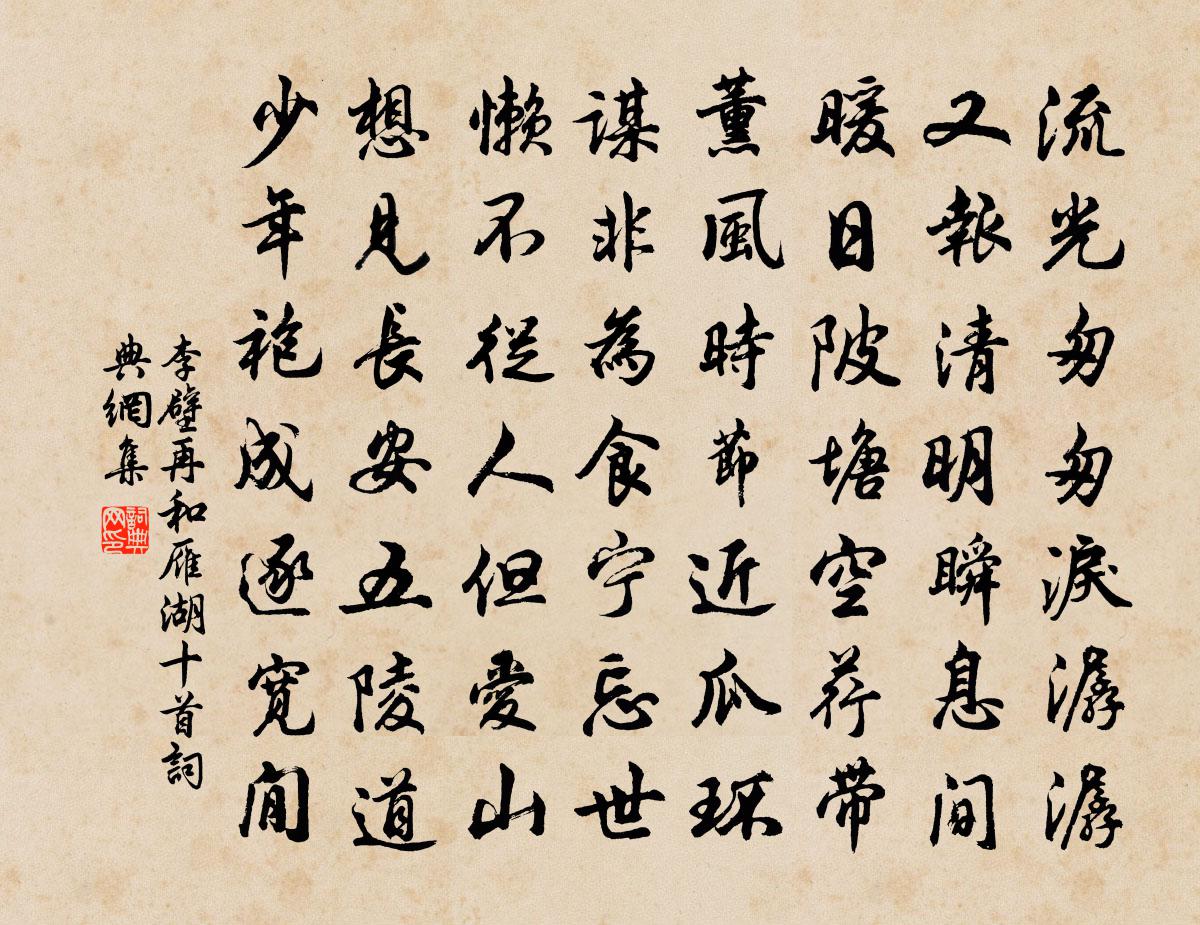 流光匆匆淚潺潺
又報清明瞬息間
暖日陂塘空荇带
薰風時節近瓜环
謀非為食宁忘世
懶不從人但愛山
想見長安五陵道
少年袍成逐寬閒
李壁再和雁湖十首詞
典網集
詞典网印